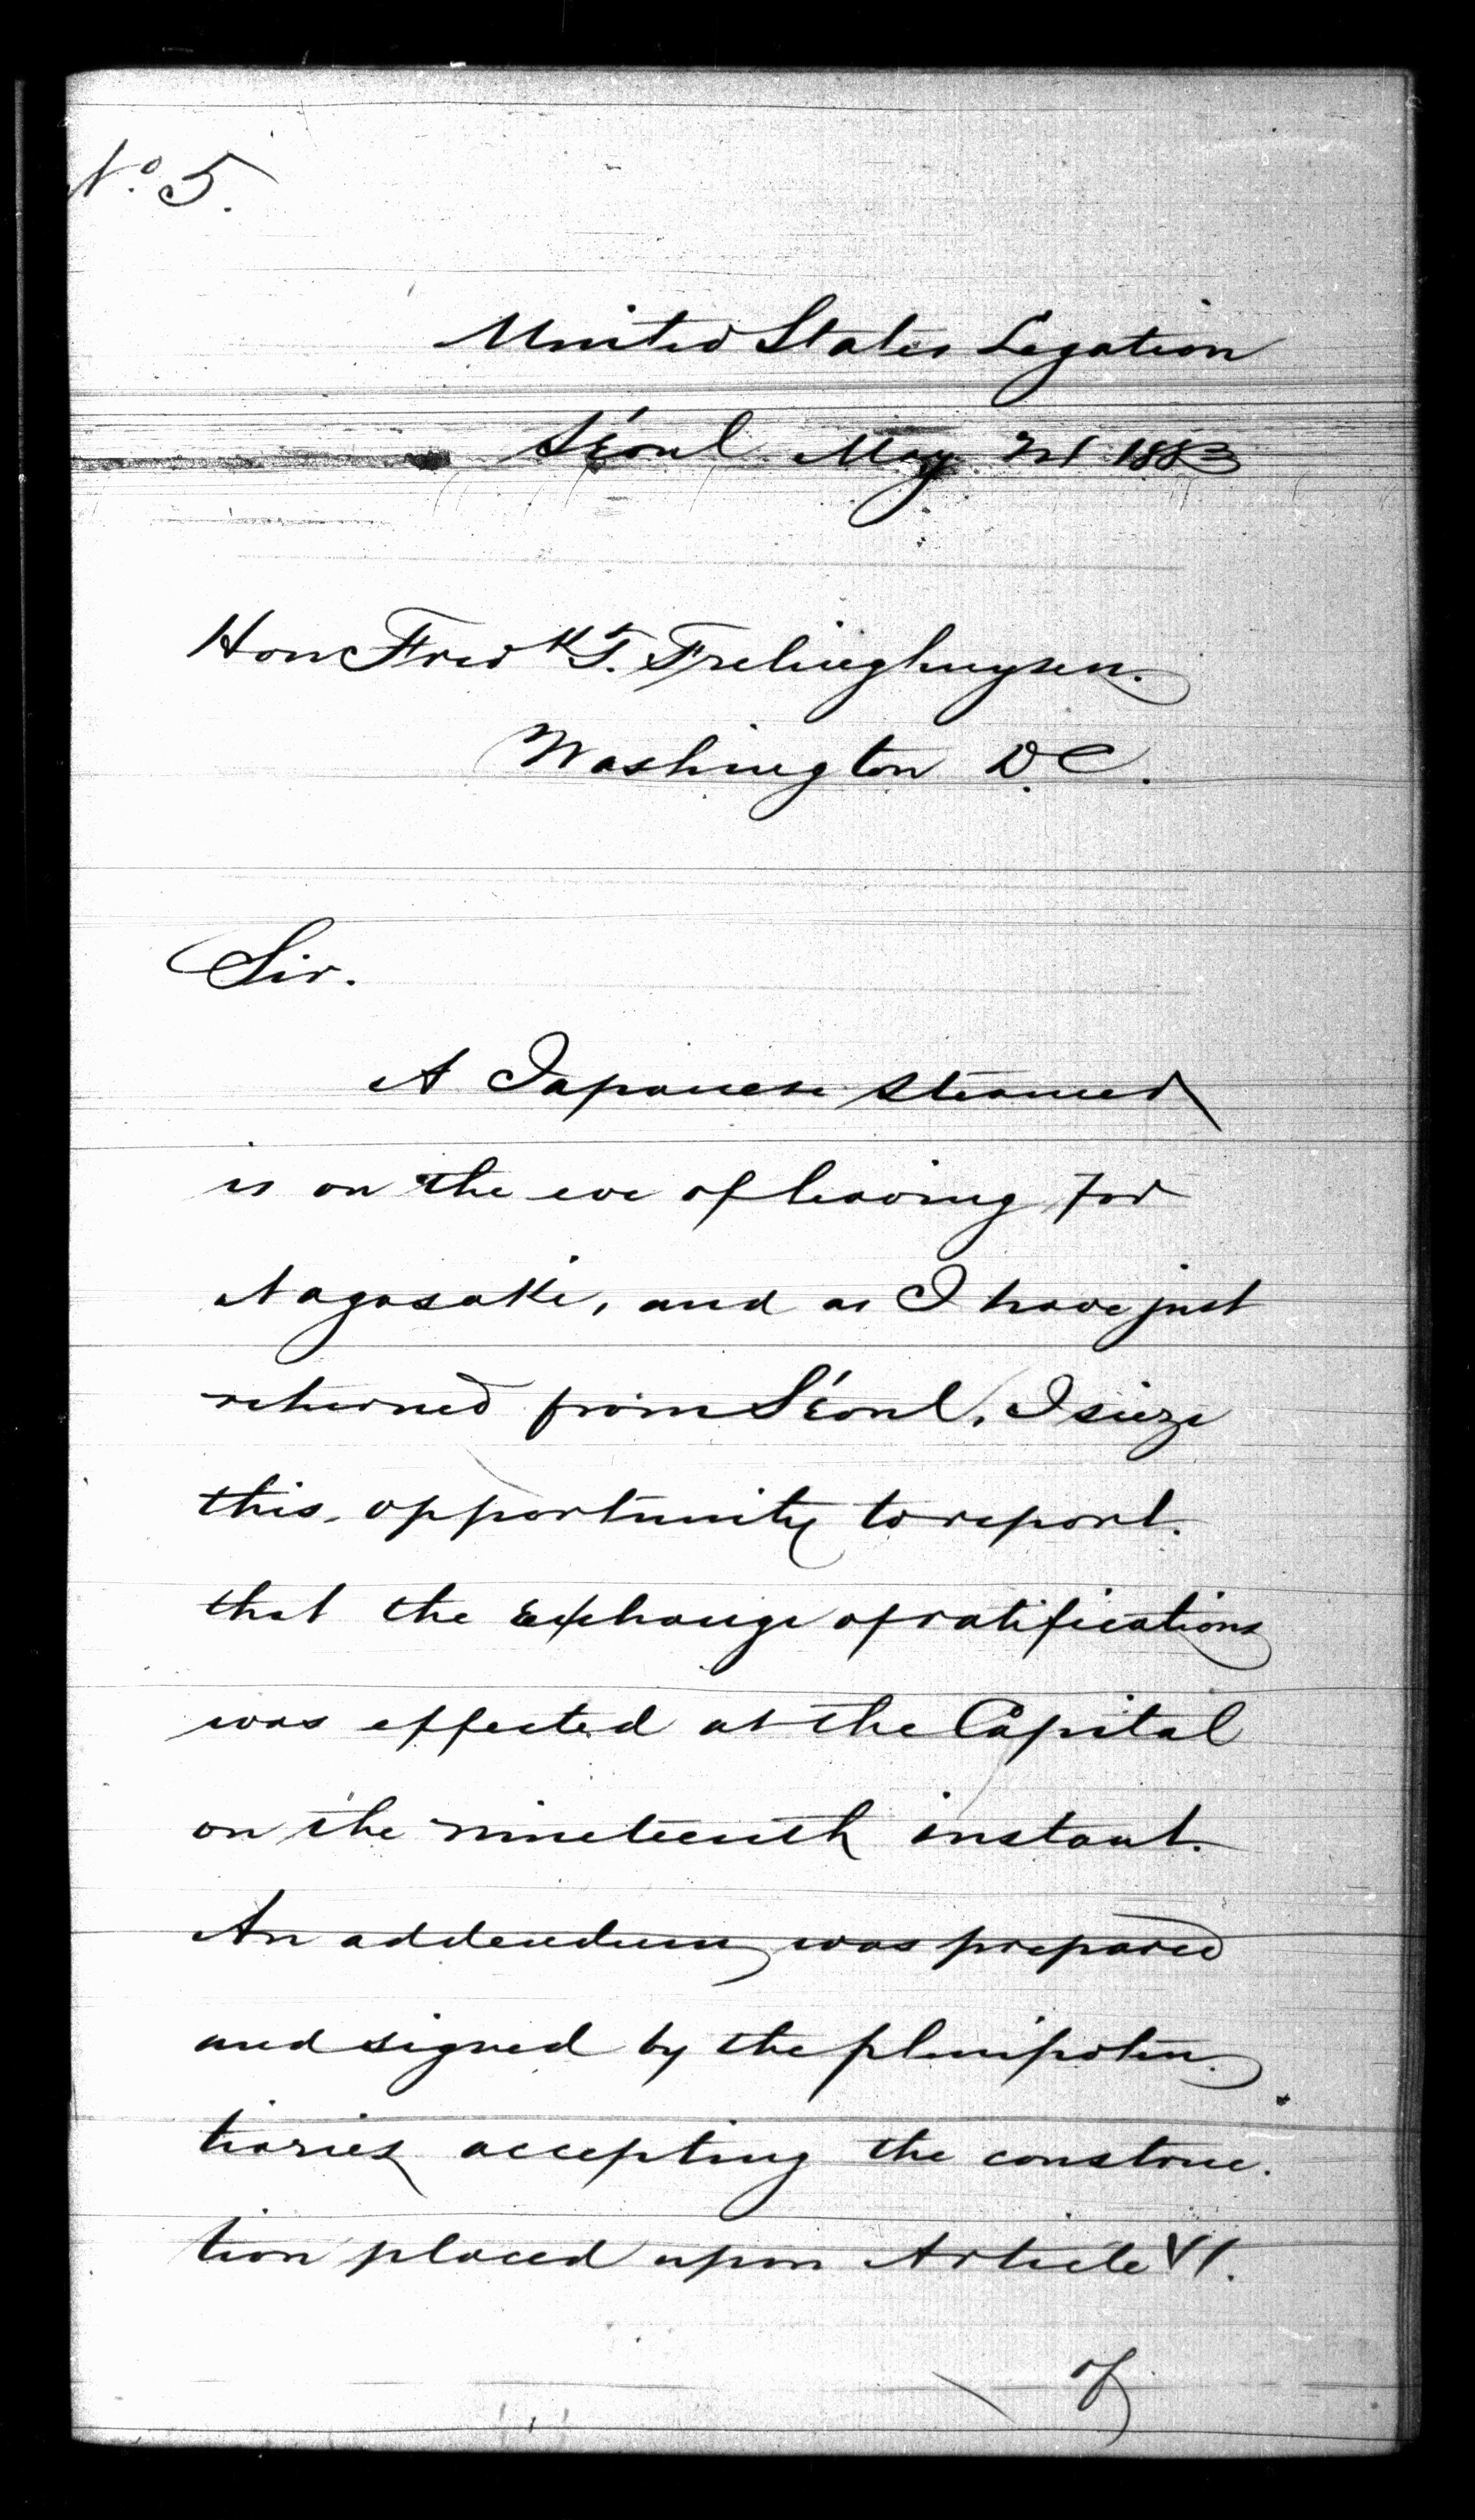 No. 5.
United States Legation
Séoul May 21 1883
Hon Fredk T. Frelinghuysen.
Washington D.C.
Sir.
A Japanese steamer
is on the eve of leaving for
Nagasaki, and as I have just
returned from Séoul, I sieze
this opportunity to report.
that the Exchange of ratifications
was effected at the Capital
on the nineteenth instant.
An addendum was prepared
and signed by the plenipoten-
tiaries accepting the construc-
tion placed upon Article VI.
of